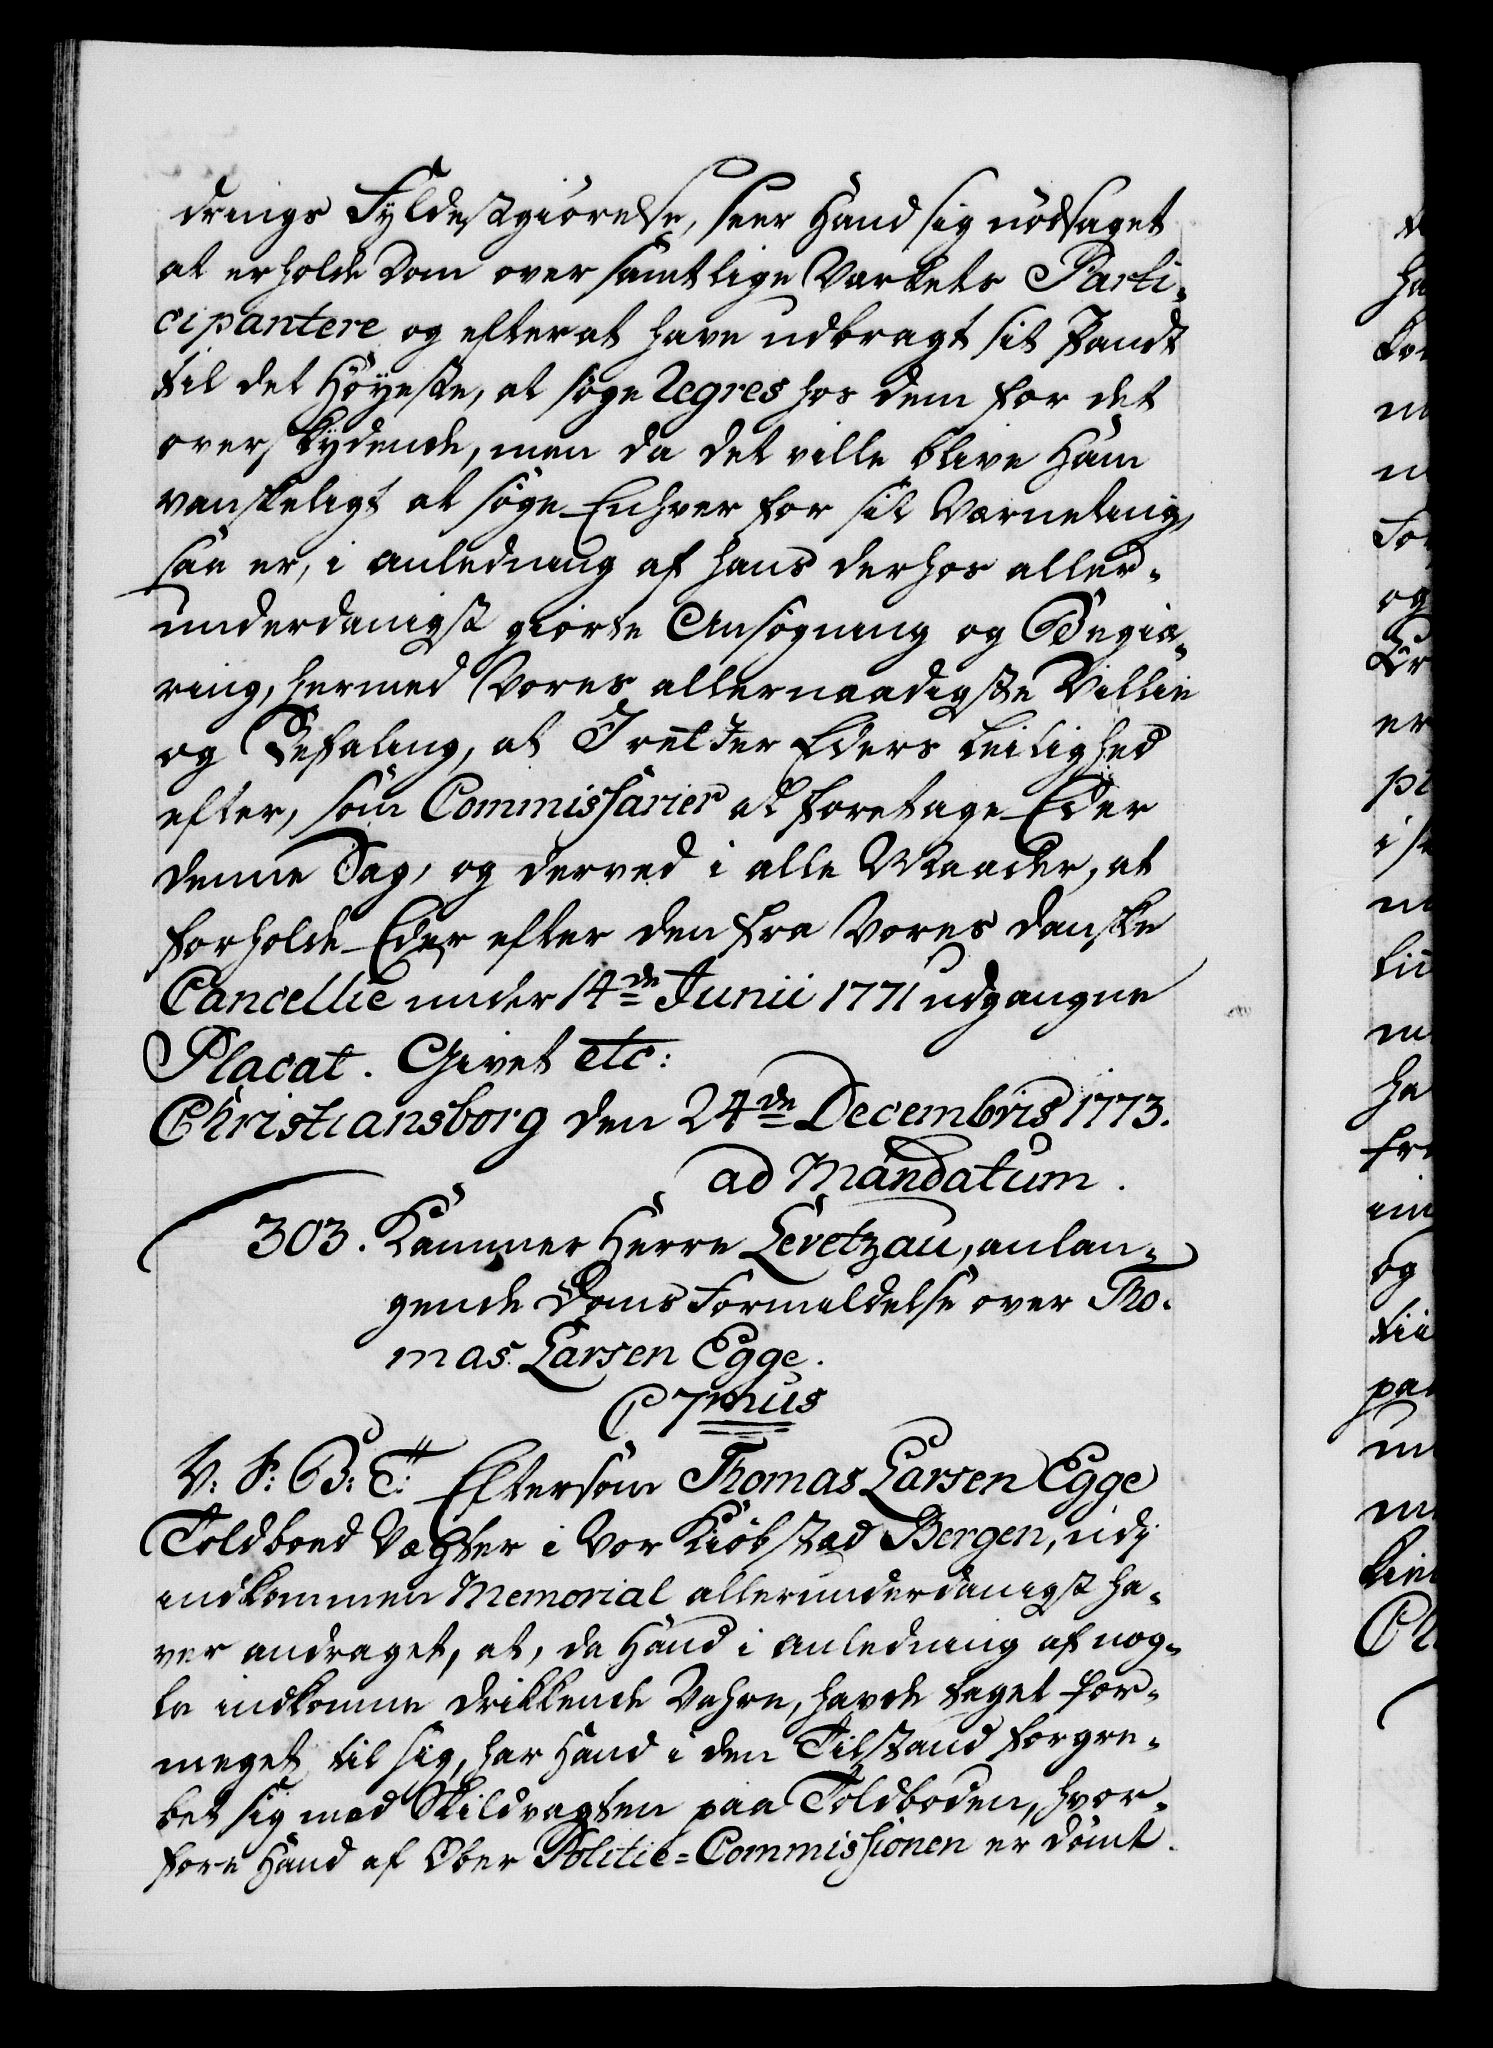 drings Fyldestgiörelse, seer Hand sig nödsaget
at erholde Dom over samtlige Værkets Parti-
cipantere og efter at have udbragt sit Pandt
til det Höyeste, at söge Regres hos dem for det
overskydende, men da det ville blive Ham
vanskeligt at söge Enhver for sit Værneting,
saa er, i Anledning af hans derhos aller-
underdanigst giorte Ansögning og Begiæ-
ring, hermed Vores allernaadigste Villie
og Befaling, at I retter Eders Leilighed
efter, som Commissarier at foretage Eder
denne Sag, og derved i alle Maader, at
forholde Eder efter den fra Vores danske
Cancellie under 14de Junii 1771 udgangne
Placat. Givet etc:
Christiansborg den 24de Decembris 1773.
ad Mandatum.
303. Kammer Herre Levetzau, anlan-
gende Doms Formildelse over Tho-
mas Larsen Egge.
C 7mus
V: S: B: T: Eftersom Thomas Larsen Egge
Toldboed Vægter i Vor Kiöbstad Bergen, udj
indkommen Memorial allerunderdanigst ha-
ver andraget, at, da Hand i Anledning af nog-
le indkomne drikkende Vahre, havde taget for-
meget til sig, har Hand i den Tilstand forgre-
bet sig mod Skildvagten paa Toldboden, hvor-
fore Hand af Ober Politie-Commissionen er dömt